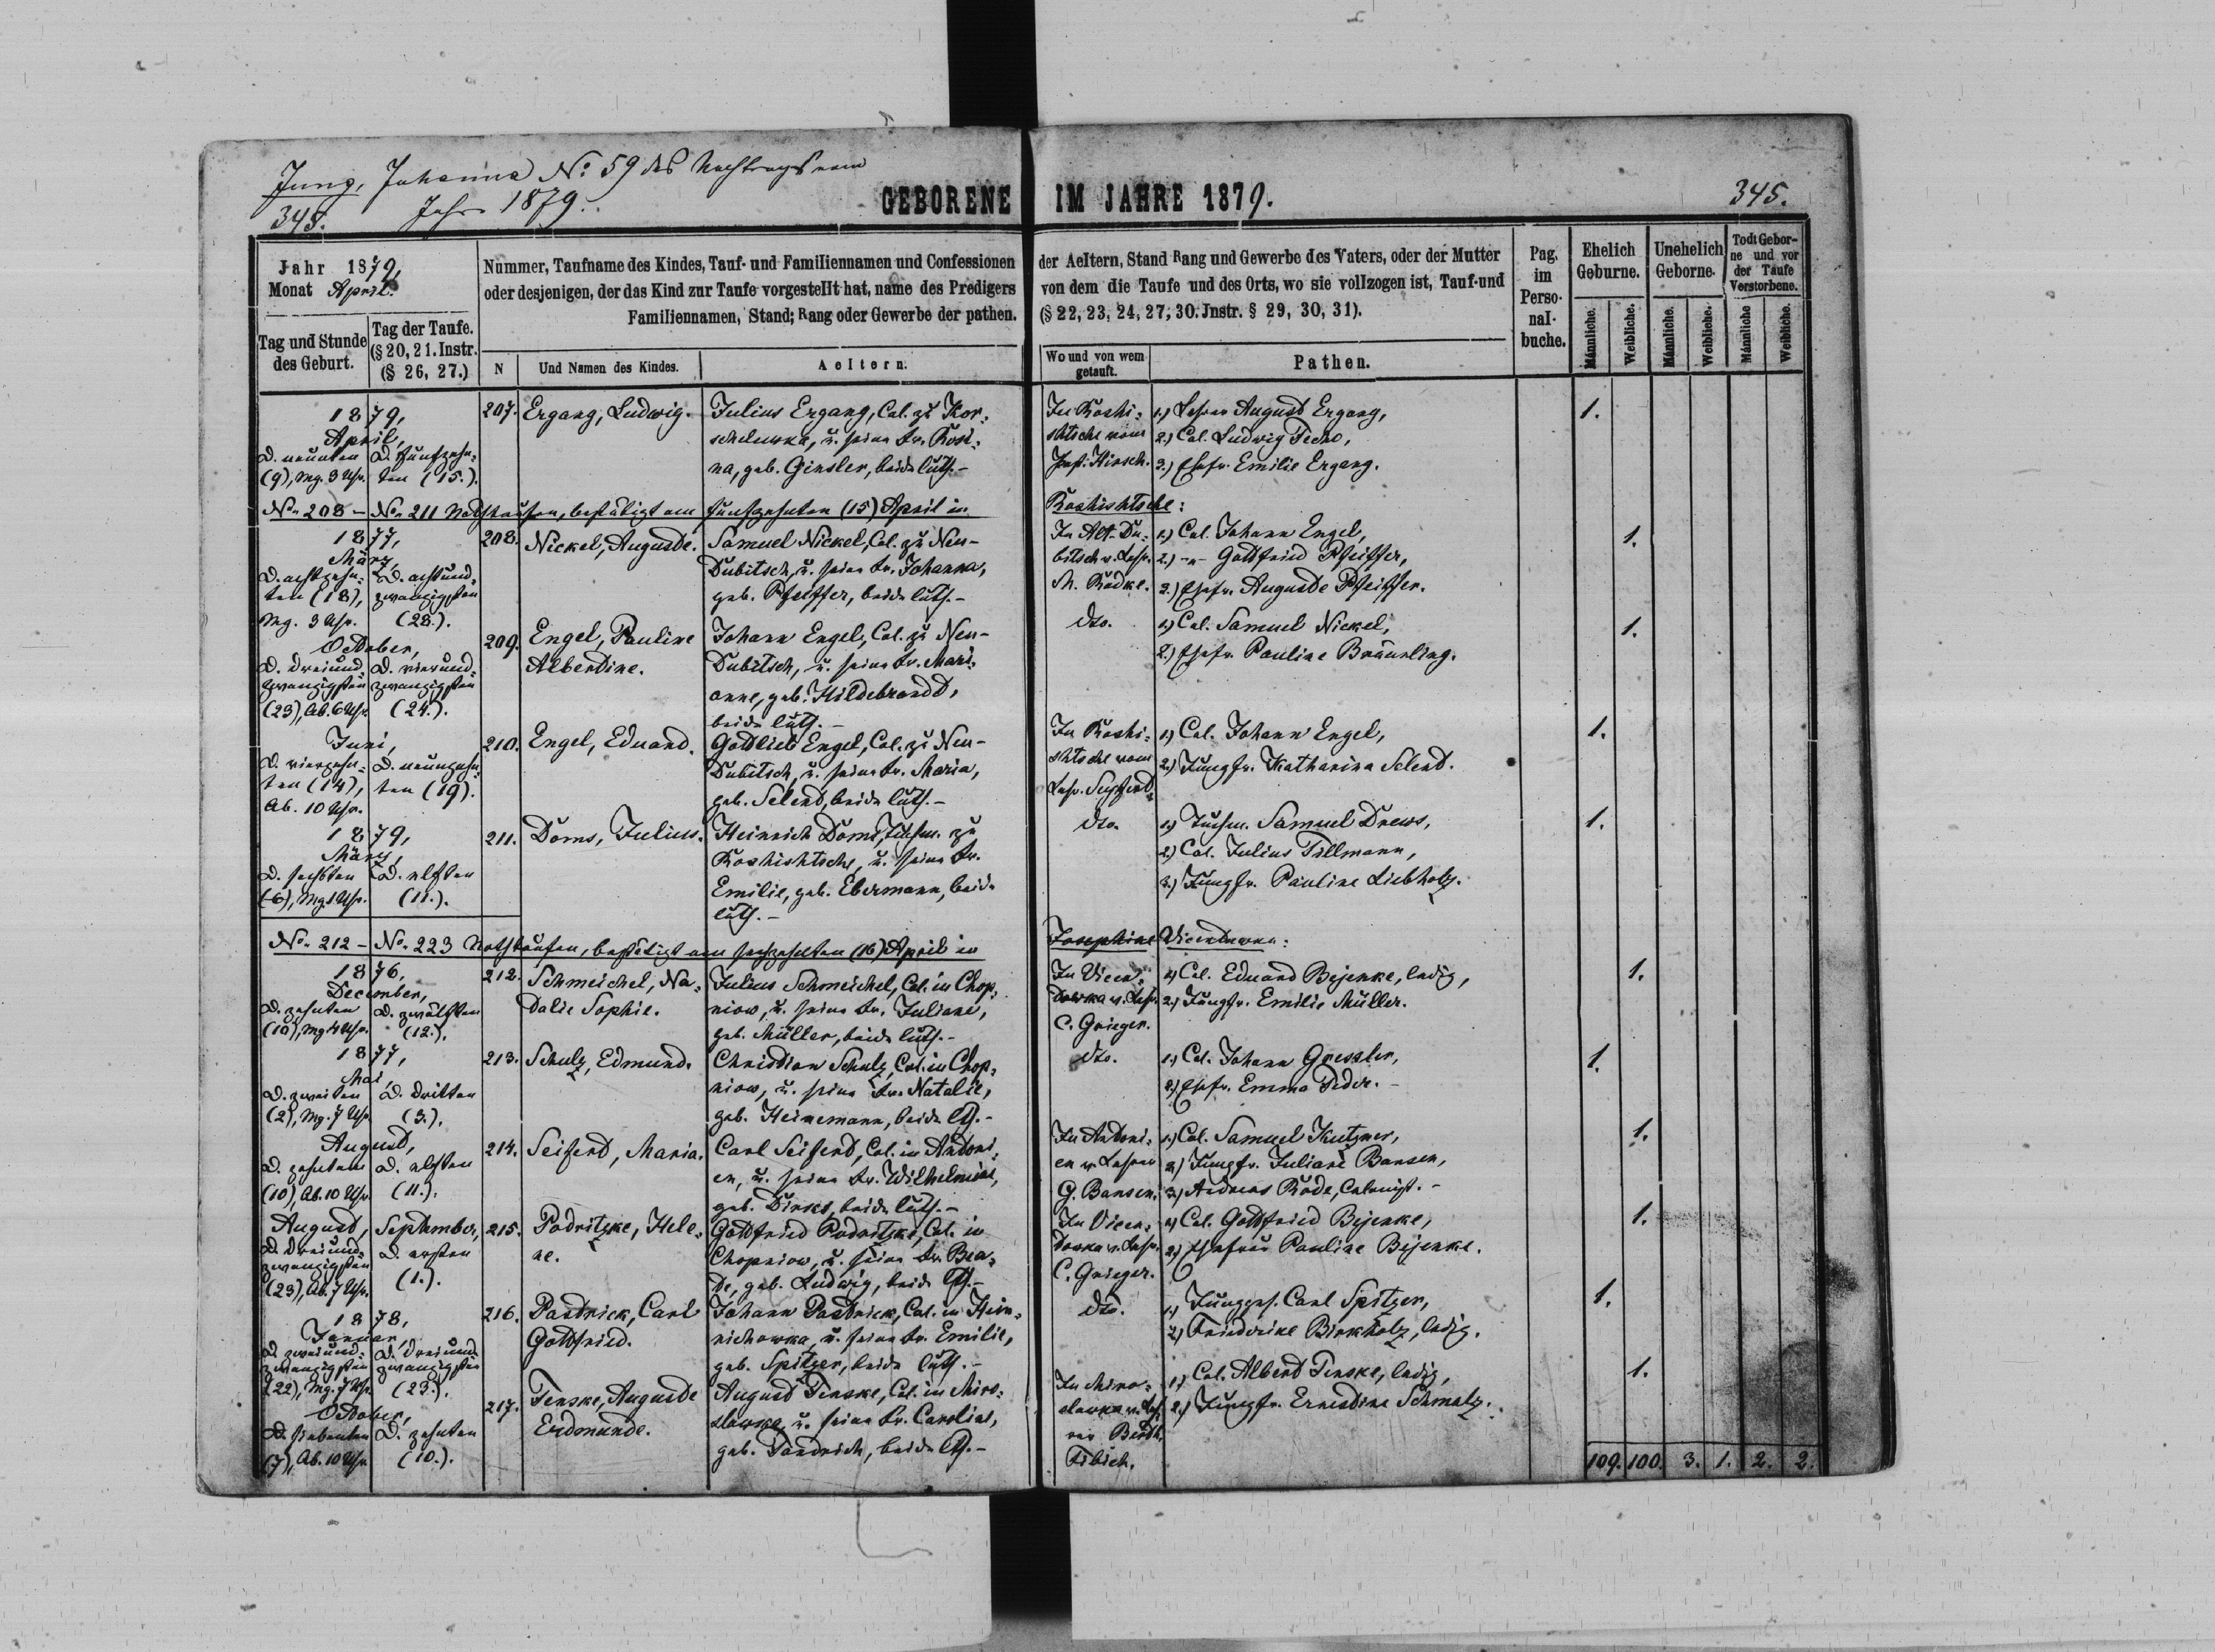 Jung, Johanna No. 59 des Nachtrags vom
Jahr 1879.
345.
GEBORENE IM JAHRE 1879.
345.
Jahr 1879,
Monat April.
Tag und Stunde
des Geburt.
Tag der Taufe.
(§ 20, 21. Instr.
(§ 26, 27.)
Nummer, Taufname des Kindes, Tauf- und Familiennamen und Confessionen
oder desjenigen, der das Kind zur Taufe vorgestellt hat, name des Predigers
Familiennamen, Stand; Rang oder Gewerbe der pathen.
N
Und Namen des Kindes.
Aeltern.
der Aeltern, Stand Rang und Gewerbe des Vaters, oder der Mutter
von dem die Taufe und des Orts, wo sie vollzogen ist, Tauf-und
(§ 22, 23, 24, 27, 30. Jnstr. § 29, 30, 31).
Wo und von wem
getauft.
Pathen.
Pag.
im
Perso-
nal-
buche.
Ehelich
Geburne.
Unehelich
Geborne.
Todt Gebor-
ne und vor
der Taufe
Verstorbene.
Männliche.
Weibliche.
Männliche.
Weibliche.
Männliche
Weibliche.
1879,
April,
D. neunten
(9), Mg. 3 Uhr.
D. fünfzehn-
ten (15.).
207.
Ergang, Ludwig.
Julius Ergang, Col. zu Kor-
schelewka, u. seine Fr. Rosi-
na, geb. Ginsler, beide luth.-
In Roshi-
shtsche vom
Past. Hirsch.
1.) Lehrer August Ergang,
2.) Col. Ludwig Techo,
3.) Ehefr. Emilie Ergang.
1.
No. 208 - No. 211 Nothtaufen, bestätigt am fünfzehnten (15) April in Roshishtsche:
1877,
März,
D. achtzehn-
ten (18),
Mg. 3 Uhr.
D. achtund-
zwanzigsten
(28.).
208.
Nickel, Auguste.
Samuel Nickel, Col. zu Neu-
Dubitsch, u. seine Fr. Johanna,
geb. Pfeiffer, beide luth.-
In Alt-Du-
bitsch v. Lehr.
M. Radke.
1.) Col. Johann Engel,
2.) -"- Gottfried Pfeiffer,
3.) Ehefr. Auguste Pfeiffer.
1.
October,
D. dreiund-
zwanzigsten
(23), Ab. 6 Uhr.
D. vierund-
zwanzigsten
(24.).
209.
Engel, Pauline
Albertine.
Johann Engel, Col. zu Neu-
Dubitsch, u. seine Fr. Mari-
anne, geb. Hildebrandt,
beide luth.-
dto.
1.) Col. Samuel Nickel,
2.) Ehefr. Pauline Bräunling.
1.
Juni,
D. vierzehn-
ten (14),
Ab. 10 Uhr.
D. neunzehn-
ten (19).
210.
Engel, Eduard.
Gottlieb Engel, Col. zu Neu-
Dubitsch, u. seine Fr. Maria,
geb. Selent, beide luth.-
In Roshi-
shtsche vom
1.) Col. Johann Engel,
2.) Jungfr. Katharina Selent.
1.
1879,
März,
D. sechsten
(6), Mg. 1 Uhr.
D. elften
(11.).
211.
Doms, Julius.
Heinrich Doms, Tuchm. zu
Roshishtsche, u. seine Fr.
Emilie, geb. Ebermann, beide
luth.-
dto.
1.) Tuchm. Samuel Drews,
2.) Col. Julius Tillmann,
3.) Jungfr. Pauline Liebholz.
1.
No. 212 - No. 223 Nothtaufen, bestätigt am sechzehnten (16) April in Josephine Vicentowka:
1876,
December,
D. zehnten
(10), Mg. 4 Uhr.
D. zwölften
(12.).
212.
Schmeichel, Na-
talie Sophie.
Julius Schmeichel, Col. in Chop-
niow, u. seine Fr. Juliane,
geb. Müller, beide luth.-
In Vicen-
towka v. Lehr.
C. Grieger.
1.) Col. Eduard Bejenke, ledig,
2.) Jungfr. Emilie Müller.
1.
1877,
Mai,
D. zweiten
(2), Mg. 7 Uhr
D. dritten
(3.).
213.
Schulz, Edmund.
Christian Schulz, Col. in Chop-
niow, u. seine Fr. Natalie,
geb. Heinemann, beide lth.-
dto.
1.) Col. Johann Gressler,
2.) Ehefr. Emma Feder.-
1.
August,
D. zehnten
(10), Ab. 10 Uhr
D. elften
(11.).
214.
Seifert, Maria.
Carl Seifert, Col. in Antoni-
en, u. seine Fr. Wilhelmine,
geb. Dirks, beide luth.-
In Antoni-
en v. Lehrer
G. Bansen.
1.) Col. Samuel Kutzner,
2.) Jungfr. Juliane Bansen,
3.) Andreas Rode, Colonist.-
1.
August,
D. dreiund-
zwanzigsten
(23), Ab. 7 Uhr.
September,
D. ersten
(1.).
215.
Podritzke, Hele-
ne.
Gottfried Podritzke, Col. in
Chopniow, u. seine Fr. Bea-
te, geb. Ludwig, beide lth.-
In Vicen-
towka v. Lehr.
C. Grieger.
1.) Col. Gottfried Bejenke,
2.) Ehefrau Pauline Bejenke.
1.
1878,
Januar,
D. zweiund-
zwanzigsten
(22), Mg. 7 Uhr.
D. dreiund-
zwanzigsten
(23.).
216.
Pastrick, Carl
Gottfried.
Johann Pastrick, Col. in Hein-
richowka, u. seine Fr. Emilie,
geb. Spitzer, beide luth.-
dto.
1.) Jungges. Carl Spitzer,
2.) Friederike Birkholz, ledig.
1.
October,
D. siebenten
(7), Ab. 10 Uhr
D. zehnten
(10.).
217.
Tenske, Auguste
Erdmunde.
August Tenske, Col. in Miro-
slawka, u. seine Fr. Caroline,
geb. Jandrich, beide lth.-
In Miro-
slawka v. Leh-
rer Berth.
Fibich.
1.) Col. Albert Tenske, ledig,
2.) Jungfr. Ernestine Schmalz.
1.
109. 100. 3. 1. 2. 2.